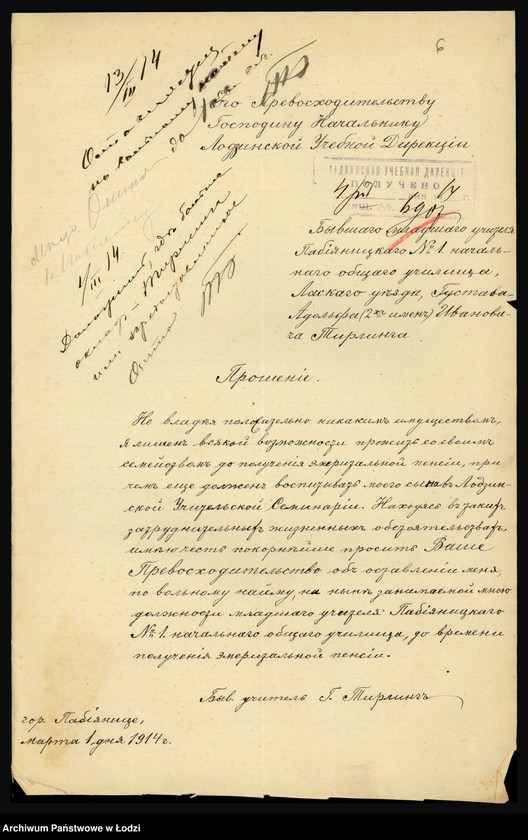 6
13/III 14
Его Превосходительству
Господину Начальнику
Лодзинской Учебной Дирекціи
ЛОДЗИНСКАЯ УЧЕБНАЯ ДИРЕКЦІЯ
ПОЛУЧЕНО
Бывшаго младшаго учителя
Пабіяницкаго № 1 началь-
наго общаго училища,
Ласкаго уѣзда, Густава-
Адольфа (2хъ именъ) Иванови-
ча Тирлинга
4/III 14.
Прошеніе.
Не владѣя положительно никакимъ имуществомъ,
я лишенъ всякой возможности прожить со своимъ
семействомъ до полученія эмеритальной пенсіи, при
чемъ еще долженъ воспитывать моего сына въ Лодзин-
ской Учительской Семинаріи. Находясь въ такихъ
затруднительныхъ жизненныхъ обстоятельствахъ,
имѣю честь покорнѣйше просить Ваше
Превосходительство объ оставленіи меня,
по вольному найму, на нынѣ занимаемой мною
должности младшаго учителя Пабіяницкаго
№ 1. начальнаго общаго училища, до времени
полученія эмеритальной пенсіи.
Быв. учитель Г. Тирлингъ
гор. Пабіянице,
марта 1 дня 1914 г.
Archiwum Państwowe w Łodzi